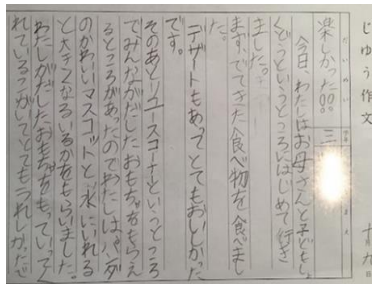 じゆう作文
十月九日
だいめい
楽しかった001
三
今日、わたしはお母さんと子どもしょ
くどうというところにはじめて行き
ました。
まず、でてきた食べ物を食べまし
た。
デザートもあってとてもおいしかった
です。
そのあとリユースコーナーというところ
でみんながだしたおもちゃをもらえ
るところがあったのでわたしはパンダ
のかわいいマスコットと、水にいれる
と大きくなるいるかをもらいました。
わたしがだしたおもちゃをもっていってく
れている子がいてとてもうれしかったで